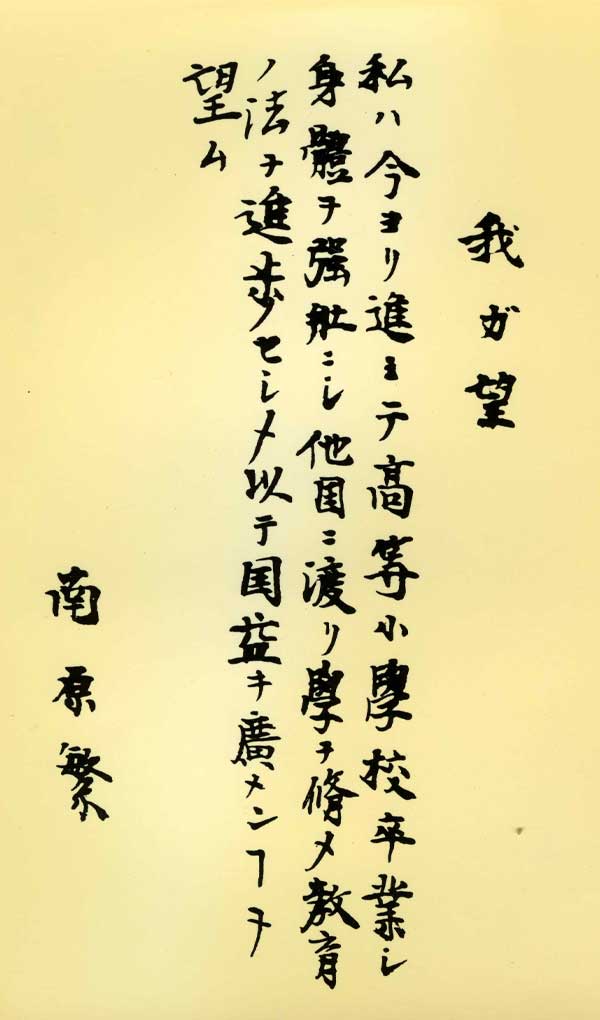 我ガ望
私ハ今ヨリ進ミテ高等小學校卒業シ
身體ヲ強壯ニシ他国ニ渡リ學ヲ脩メ教育
ノ法ヲ進歩セシメ以テ国益ヲ廣メンヿヲ
望ム
南原繁